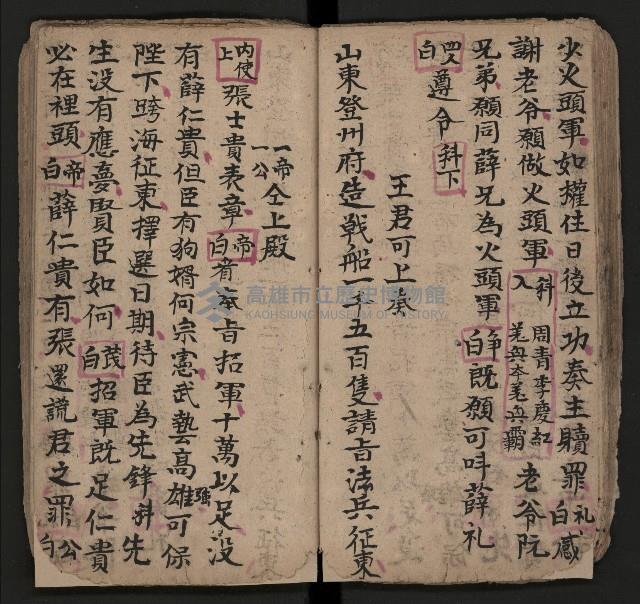 少火頭軍如權住日後立功奏主贖罪礼白感
謝老爷願做火頭軍入斜周青李慶紅姜興本姜興霸老爷阮
兄弟願同薛兄為火頭軍白净既願可叫薛礼
白四人遵令斜下
王君可上奏
山東登州府造戰船一千五百隻請旨法兵征東
一帝一公仝上殿
内使上張士貴表章帝白旨奉旨招軍十萬以足没
有薛仁貴但臣有狗婿何宗憲武藝高強雄可保
陛下跨海征東擇選日期待臣為先鋒斜先
生没有應夢賢臣如何茂白招軍既足仁貴
必在裡頭帝白薛仁貴有張還謊君之罪公白
高雄市立歷史博物館
KAOHSIUNG MUSEUM OF HISTORY